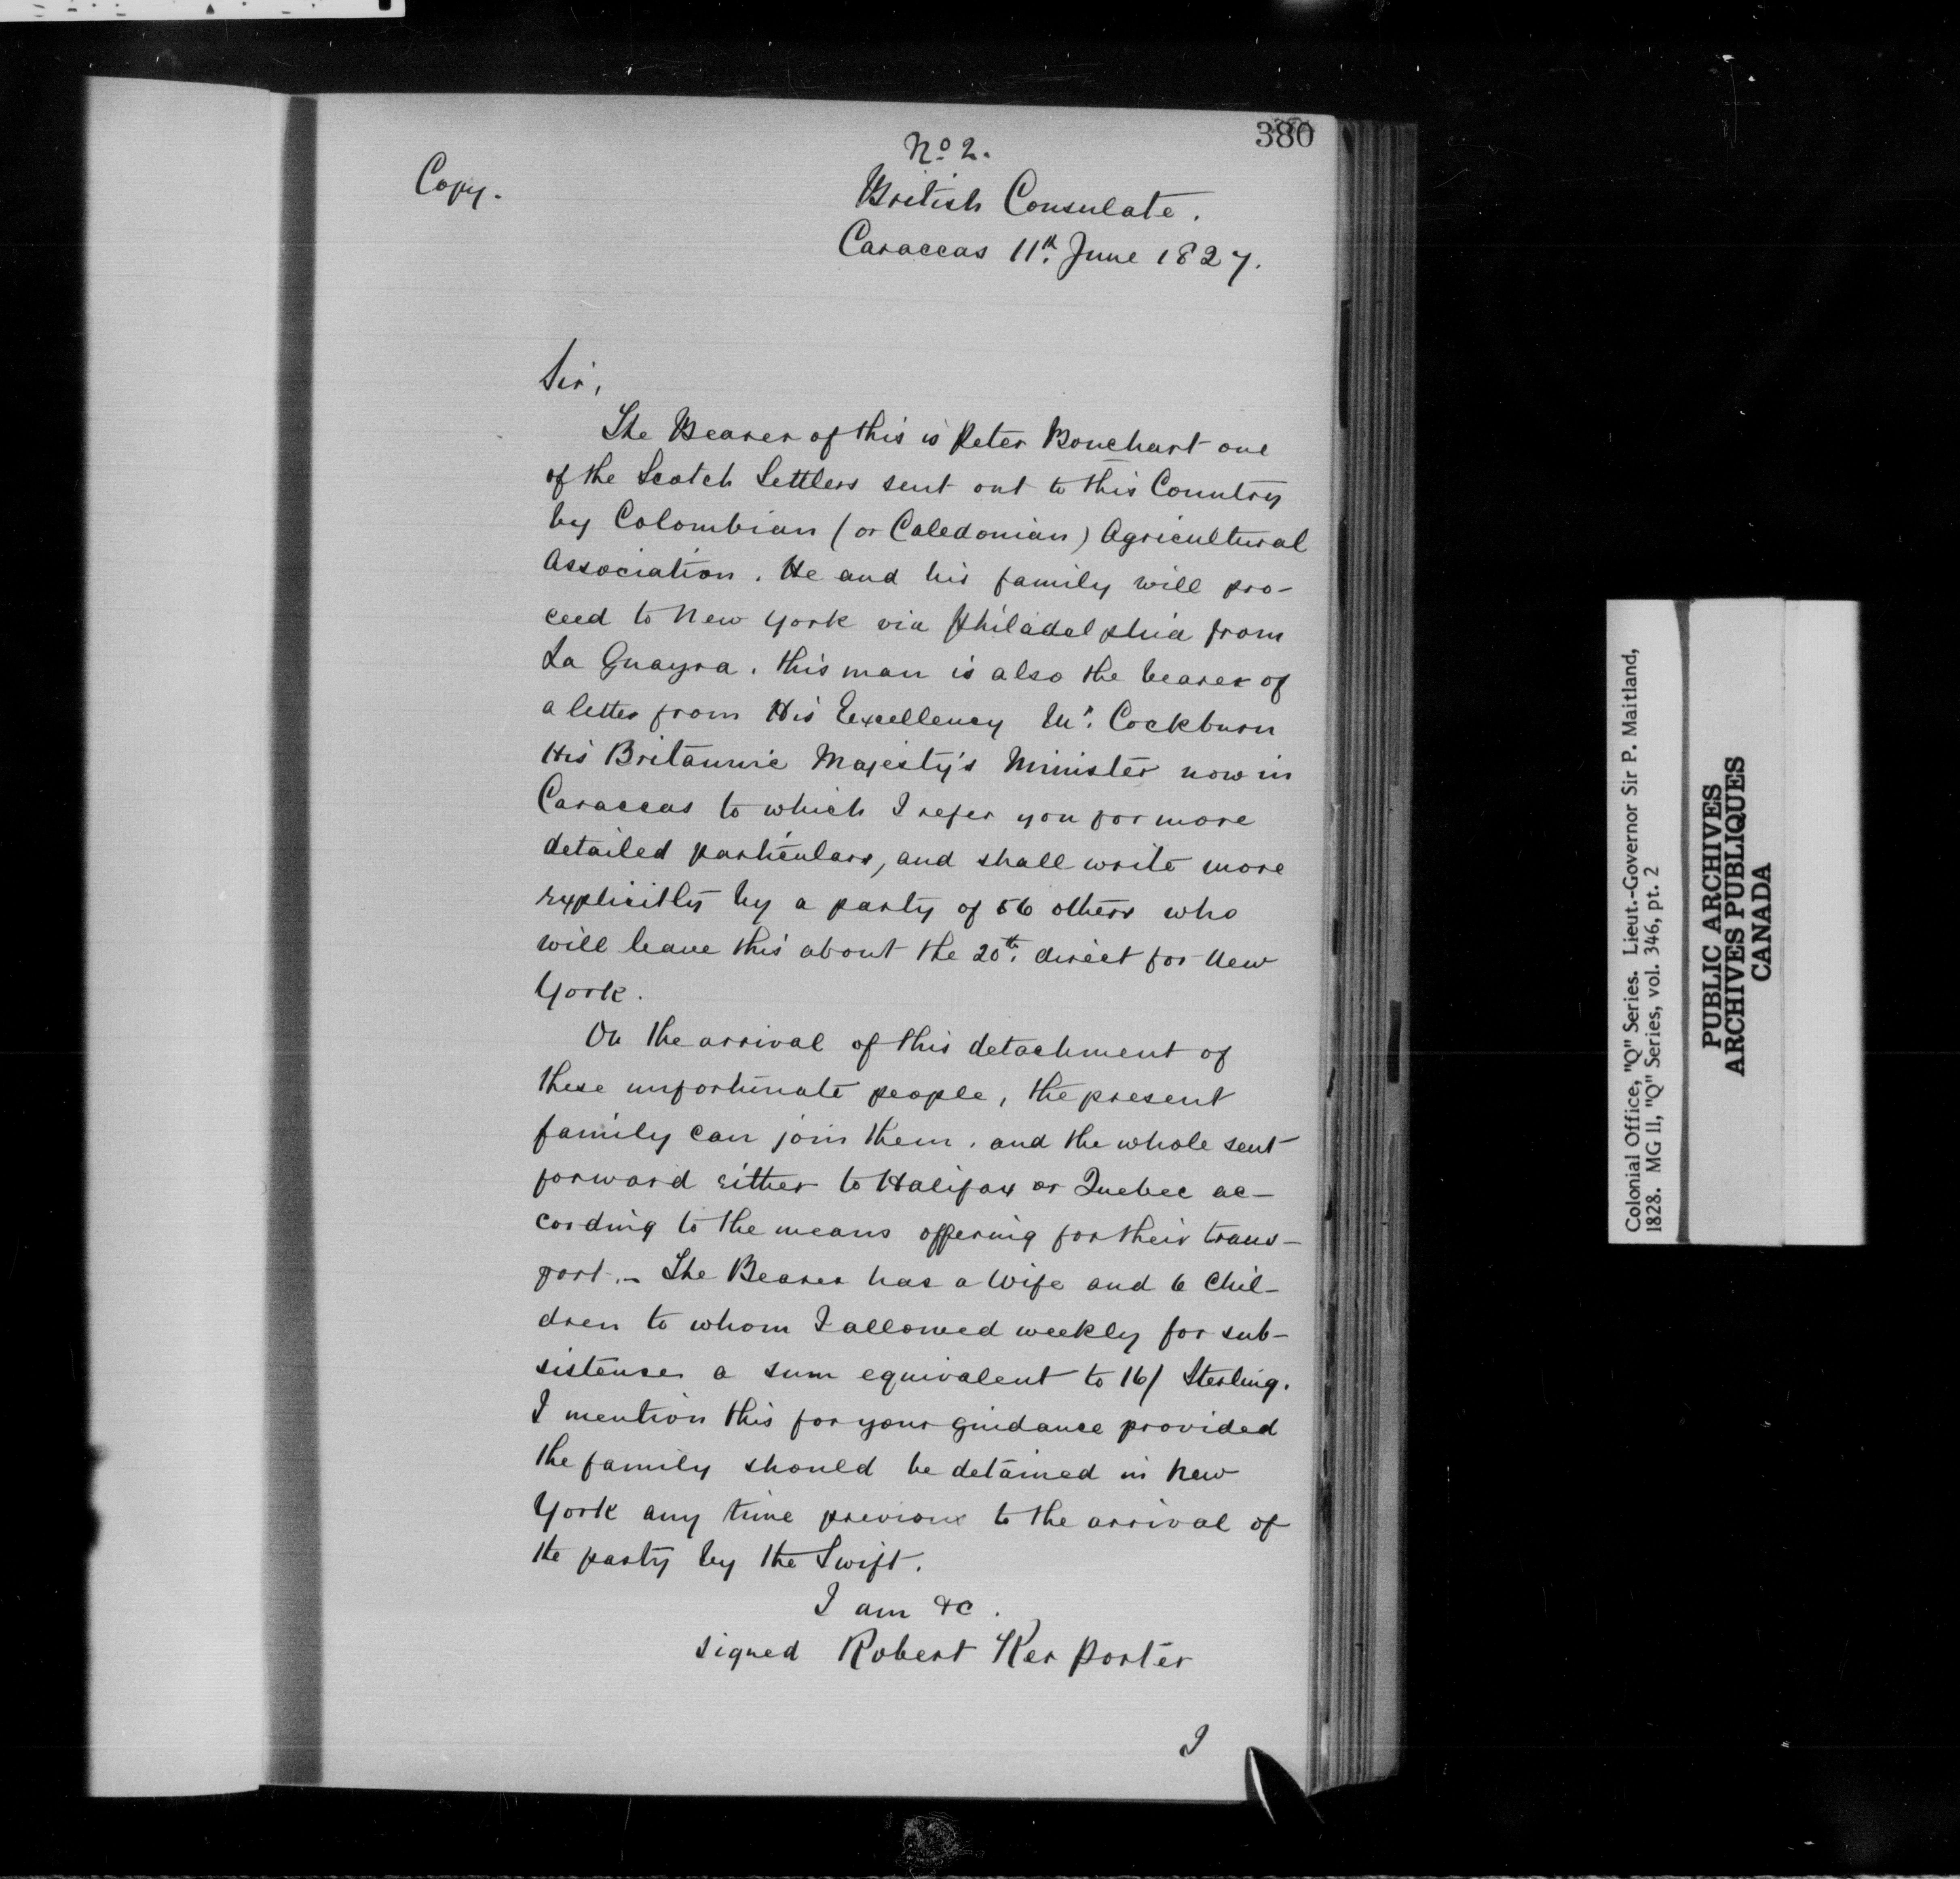 380
No 2.
Copy.
British Consulate.
Caraccas 11th. June 1827.
Sir,
The Bearer of this is Peter Bouchart one
of the Scotch Settlers sent out to this Country
by Colombian (or Caledonian) Agricultural
Association. He and his family will pro-
ceed to New York via Philadelphia from
La Guayra. this man is also the bearer of
a letter from His Excellency Mr. Cockburn
His Britannic Majesty's Minister now in
Caraccas to which I refer you for more
detailed particulars, and shall write more
explicitly by a party of 56 others who
will leave this about the 20th. direct for New
York.
On the arrival of this detachment of
these unfortunate people, the present
family can join them. and the whole sent
forward either to Halifax or Quebec ac-
cording to the means offering for their trans-
port.- The Bearer has a Wife and 6 Chil-
dren to whom I allowed weekly for sub-
sistense a sum equivalent to 16/ Sterling.
I mention this for your guidance provided
the family should be detained in New
York any time previous to the arrival of
the party by the Swift.
I am &c.
signed Robert Ker Porter
I
Colonial Office, "Q" Series. Lieut.-Governor Sir P. Maitland,
1828. MG 11, "Q" Series, vol. 346, pt. 2
PUBLIC ARCHIVES
ARCHIVES PUBLIQUES
CANADA